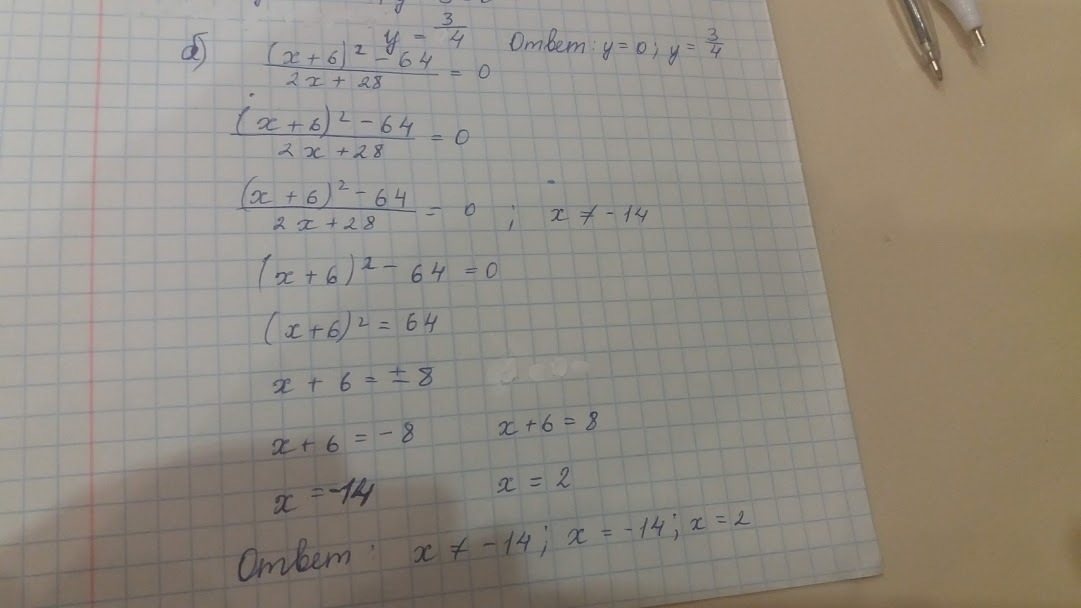 y = 3/4 Ответ: y = 0; y = 3/4
б) (x+6)² - 64 / 2x + 28 = 0
(x+6)² - 64 / 2x + 28 = 0
(x+6)² - 64 / 2x + 28 = 0 ; x ≠ -14
(x+6)² - 64 = 0
(x+6)² = 64
x + 6 = ± 8
x + 6 = -8 x + 6 = 8
x = -14 x = 2
Ответ: x ≠ -14; x = -14; x = 2